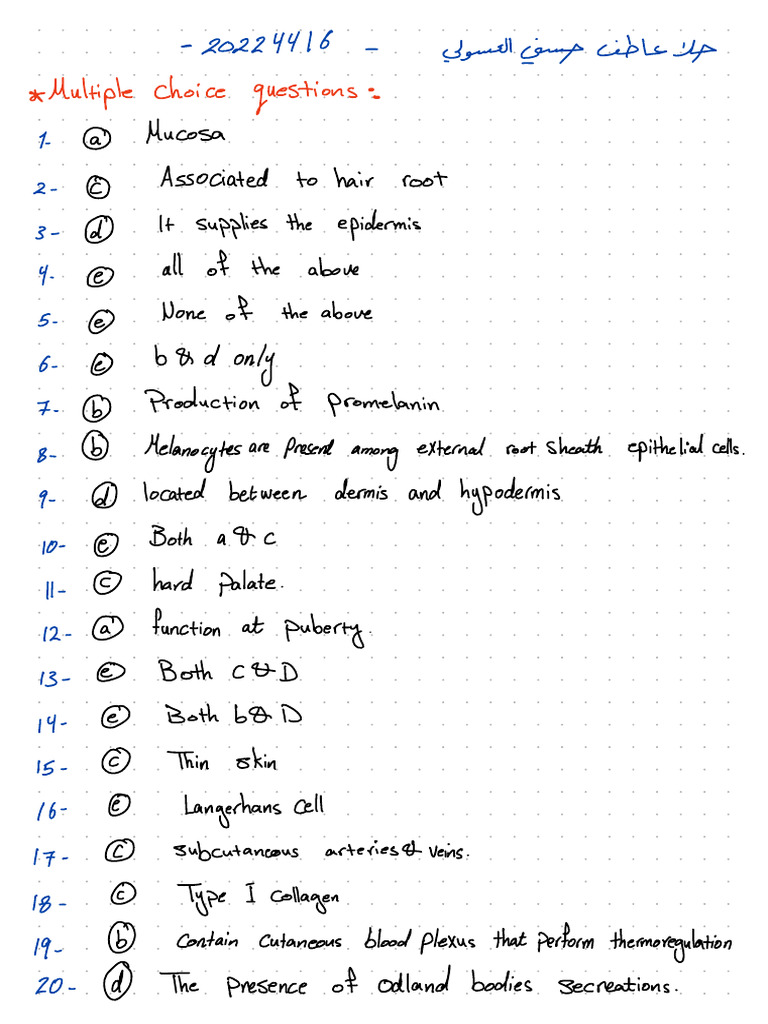 - 20224416 - حلا عاطف حسني العسولي
* Multiple choice questions:
1- a Mucosa
2- c Associated to hair root
3- d It supplies the epidermis
4- e all of the above
5- e None of the above
6- e b & d only
7- b Production of promelanin
8- b Melanocytes are Present among external root sheath epithelial cells.
9- d located between dermis and hypodermis
10- e Both a & c
11- c hard palate.
12- a function at puberty.
13- e Both c & D
14- e Both b & D
15- c Thin skin
16- e Langerhans cell
17- c subcutaneous arteries & veins.
18- c Type I collagen
19- b Contain cutaneous blood plexus that perform thermoregulation
20- d The presence of odland bodies secreations.